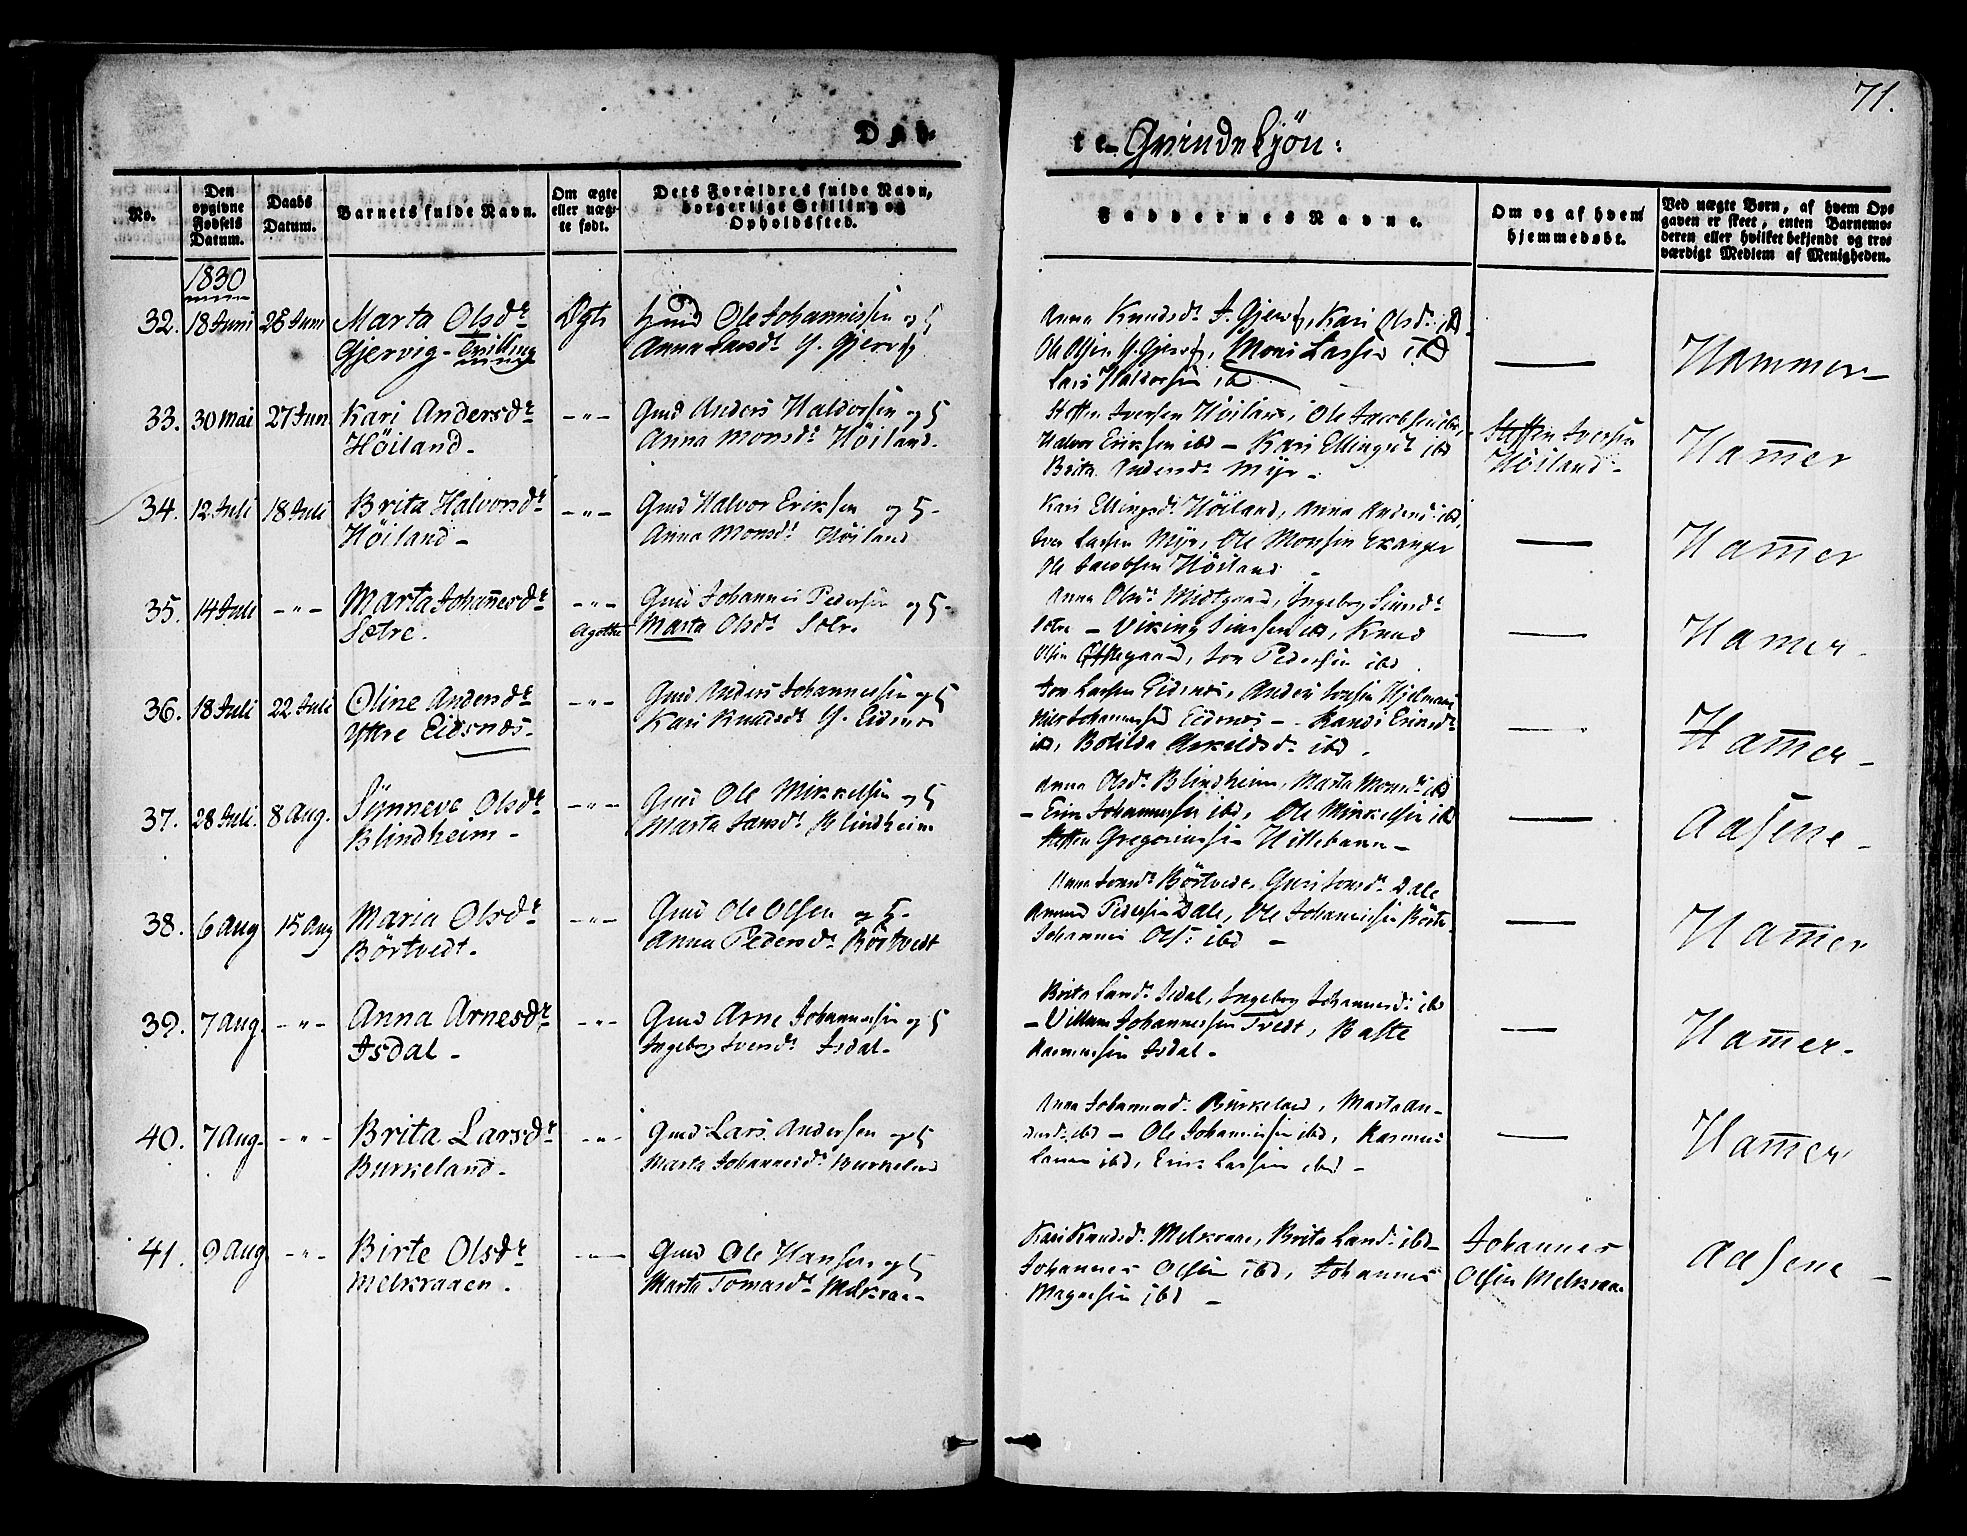 71.
Døbte Qvindekjön:
No.
Den opgivne Fødsels Datum.
Daabs Datum.
Barnets fulde Navn.
Om ægte eller uægte født.
Dets Forældres fulde Navn, borgerlige Stilling og Opholdssted.
Faddernes Navne.
Om og af hvem hjemmedøbt.
Ved uægte Børn, af hvem Opgaven er skeet, enten Barnemoderen eller hvilket bekjendt og troværdigt Medlem af Menigheden.
1830
32. 18 Juni 28 Juni Marta Olsdr Ægte Gmd Ole Johannissen og H
Gjervig - Tvilling Anna Larsdr Y. Gjervig
Anna Knudsdr Gjervig, Kari Olsdr ibd
Ole Olsen Y. Gjervig, Mons Lassen ibd
Lars Haldorsen ibd
— Hammer
33. 30 Mai 27 Jun Kari Andersdr -"- Gmd Anders Haldorsen og H
Höiland. Anna Monsdr Höiland.
Steffen Iversen Höiland, Ole Jacobsen ibd,
Halvor Eriksen ibd - Kari Ellingsdr ibd
Brita Andersdr Myr -
Steffen Iversen
Höiland -
Hamer
34. 12 Juli 18 Juli Brita Halvorsdr -"- Gmd Halvor Eriksen og H
Höiland - Anna Monsdr Höiland
Kari Ellingsdr Höiland, Anna Andersdr ibd,
Iver Lassen Myr, Ole Monsen Ekanger
Ole Jacobsen Höiland -
— Hamer
35. 14 Juli -"- Marta Johanesdr -"- Gmd Johannes Pedersen og H
Sætre. Marta Olsdr Sætre
Anna Olsdr Midtgaard, Ingeborg Simdr
Sætre - Viking Simsen ibd, Knud
Olsen, Jon Pedersen ibd.
— Hamer
36. 18 Juli 22 Juli Oline Andersdr -"- Gmd Anders Johannessen og H
Yttre Eidsnæs. Kari Knudsdr Y. Eidsnæs
Jon Lassen Eidsnæs, Anders Hjelmaas
Johannessen Eidsnes - Randi Eriksdr
ibd, Botilda Askeldsdr ibd.
— Hamer -
37. 28 Juli. 8 Aug. Synneve Olsdr -"- Gmd Ole Mikkelsen og H
Blindheim - Marta Jansdr Blindheim
Anna Olsdr Blindheim, Marta Monsdr ibd
- Erik Johannessen ibd, Ole Mikkelsen ibd
Steffen Gregoriussen -
— Aasene -
38. 6 Aug 15 Aug Maria Olsdr -"- Gmd Ole Olsen og H
Börtvedt. Anna Pedersdr Börtvedt
Anna Jonsdr Börtvedt, Guri Jonsdr Dale
Amund Pedersen Dale, Ole Johannessen Börtv
Johannes Ols: ibd -
— Hamer
39. 7 Aug. -"- Anna Arnesdr -"- Gmd Arne Johannessen og H
Isdal - Ingeborg Iversdr Isdal -
Brita Larsdr Isdal, Ingeborg Johannesdr ibd
- Villum Johannessen Tvedt, Baste
Rasmussen Isdal -
— Hamer -
40. 7 Aug. -"- Brita Larsdr -"- Gmd Lars Andersen og H
Burkeland - Marta Johannesdr Burkeland
Anna Johannesdr Burkeland, Marta An-
dersdr ibd - Ole Johannessen ibd, Rasmus
Larsen ibd, Erik Lassen ibd -
— Hamer
41. 9 Aug -"- Birte Olsdr -"- Gmd Ole Hansen og H
Melkraaen. Marta Tomasdr Melkraa-
Kari Knudsdr Melkraae, Brita Larsdr ibd -
Johannes Olsen ibd, Johannes
Magnessen ibd -
Johannes
Olsen Melkraae
Aasene -